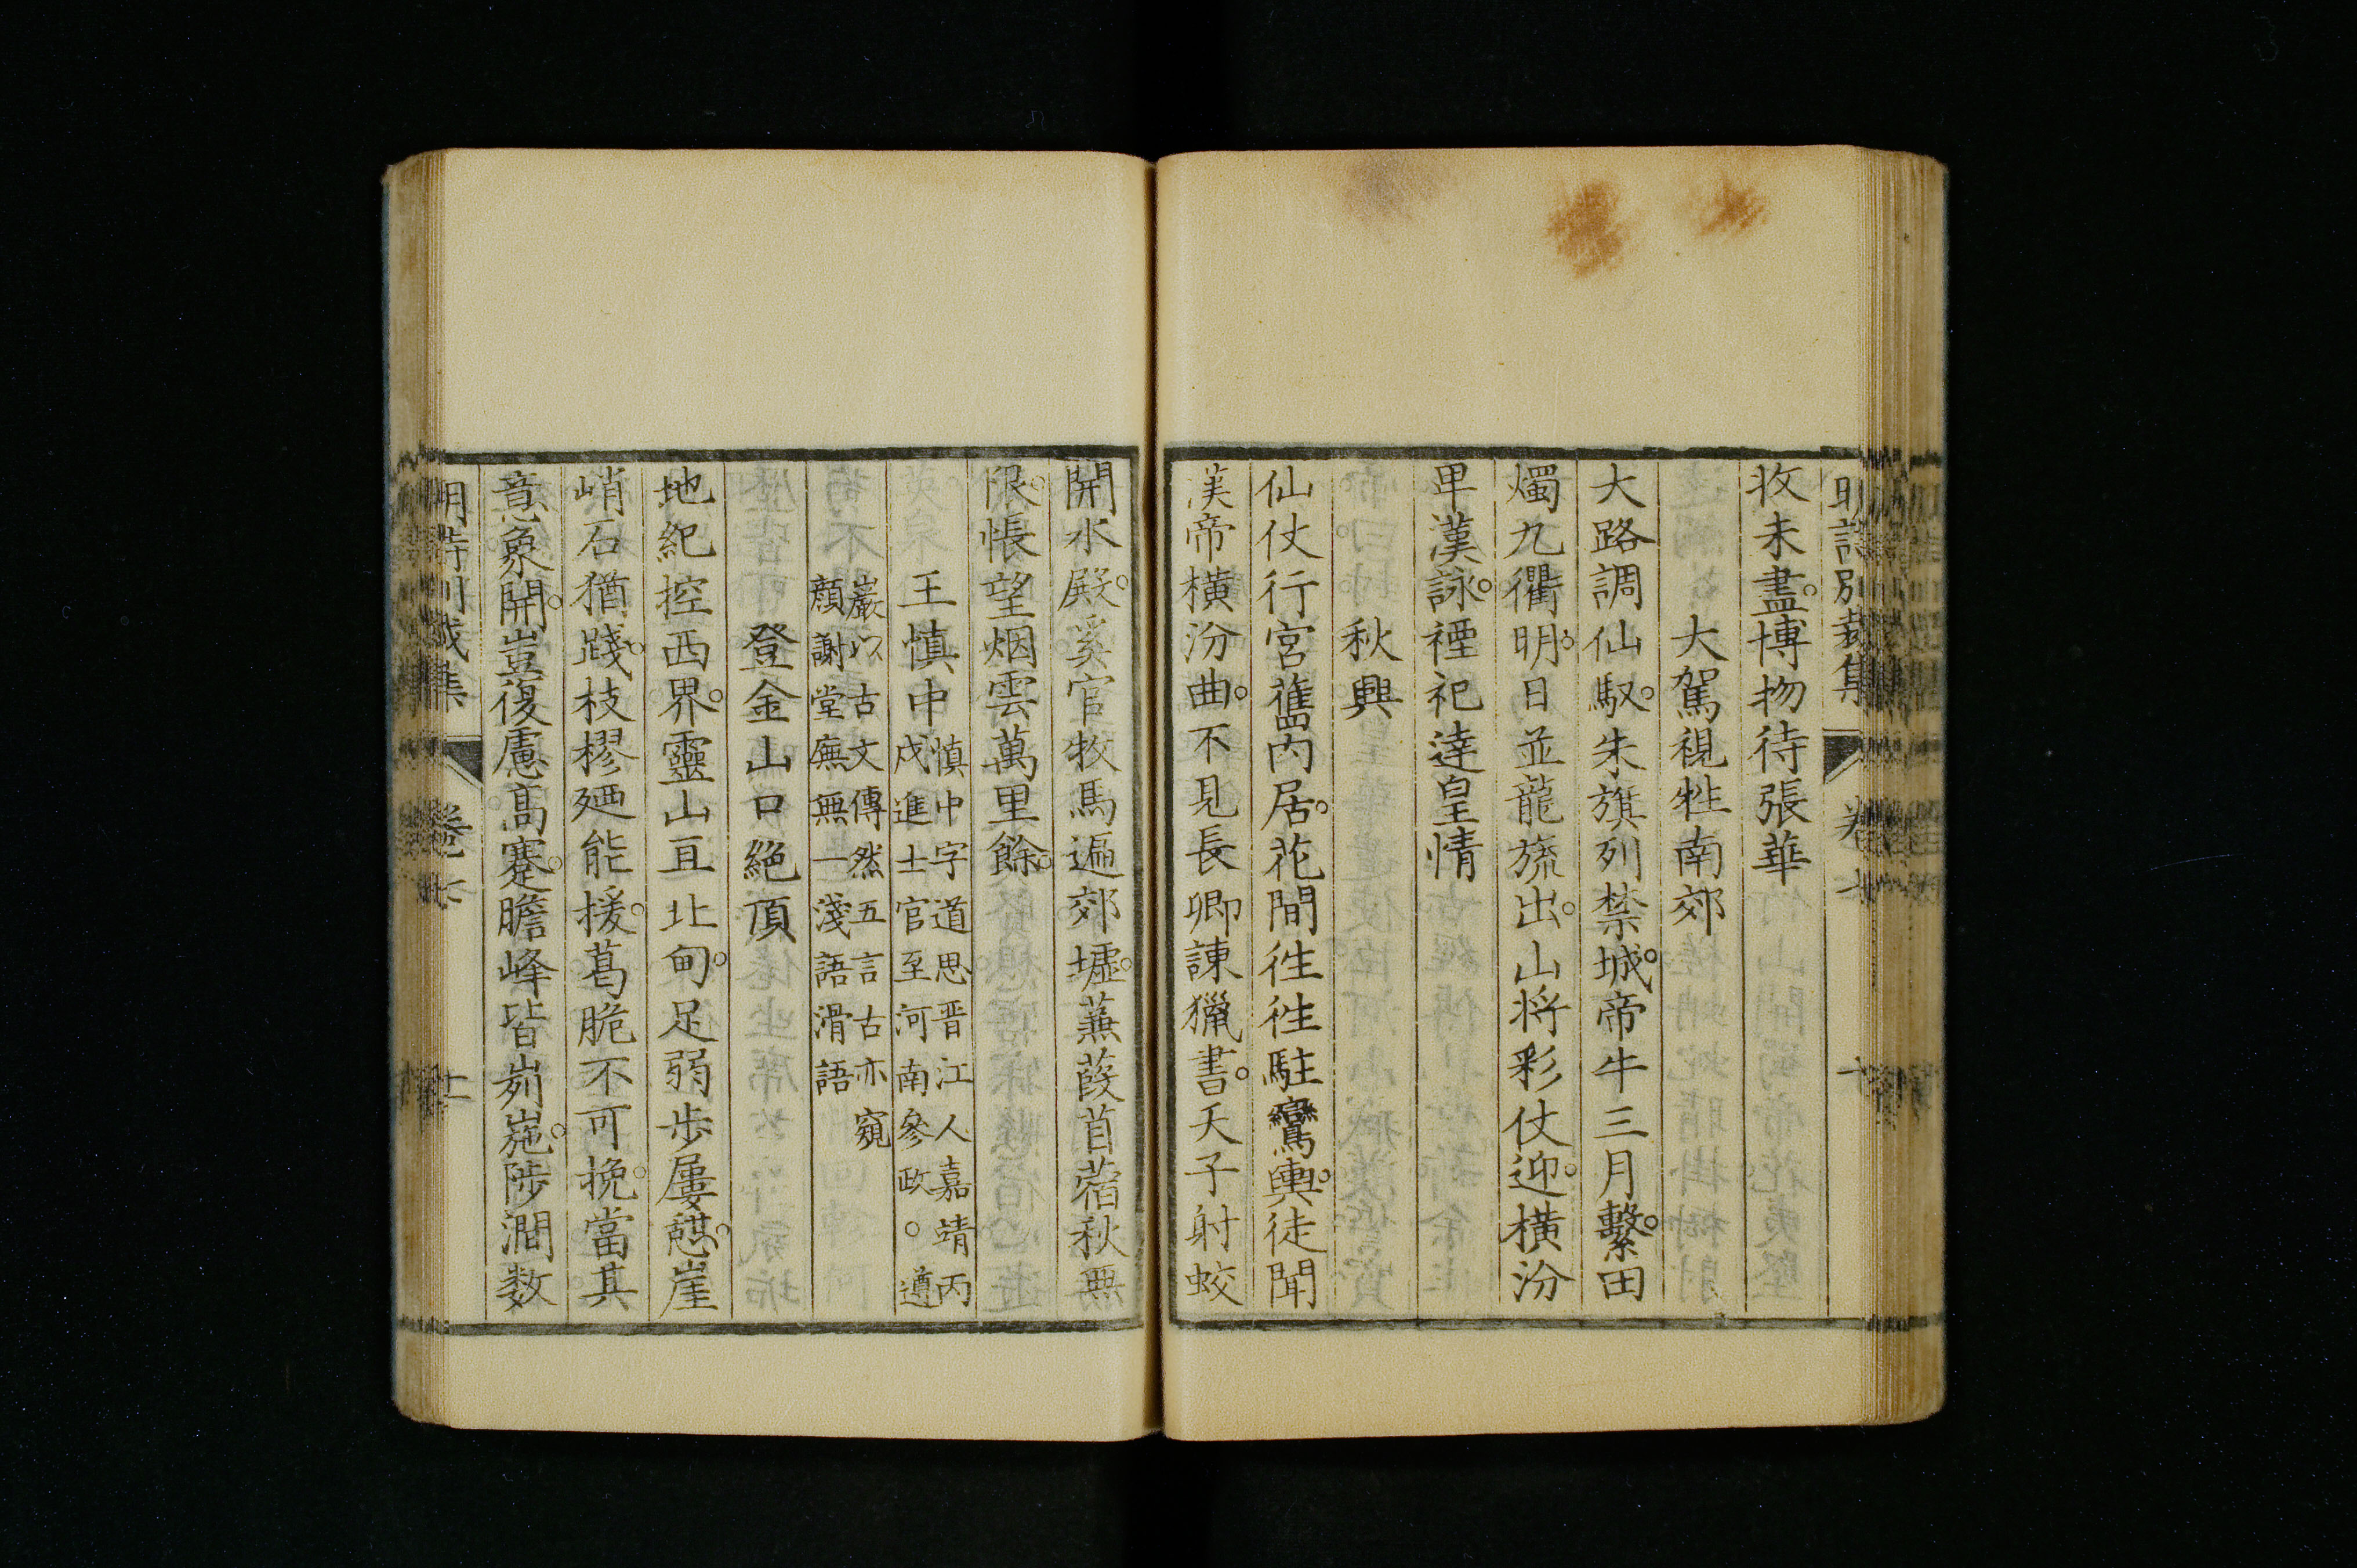 明詩別裁集 卷七 十
收未盡。博物待張華
大駕視牲南郊
大路調仙馭。朱旗列禁城。帝牛三月繫。田
燭九衢明。日並龍旒出。山將彩仗迎。橫汾
卑漢詠。禋祀達皇情
秋興
仙仗行宮舊內居。花間往往駐鸞輿。徒聞
漢帝橫汾曲。不見長卿諫獵書。天子射蛟
開水殿。奚官牧馬遍郊墟。蕪葭苜蓿秋無
限。悵望烟雲萬里餘。
王慎中 慎中字道思晋江人嘉靖丙
戌進士官至河南參政。遵
巖以古文傳然五言古亦窺
顏謝堂廡無一淺語滑語
登金山口絕頂
地紀控西界。靈山亙北甸。足弱步屢愆。崖
峭石猶踐。枝樛廼能援。葛脆不可挽。當其
意象開。豈復慮高蹇。瞻峰皆峛崺。陟澗数
明詩別裁集 卷七 十一